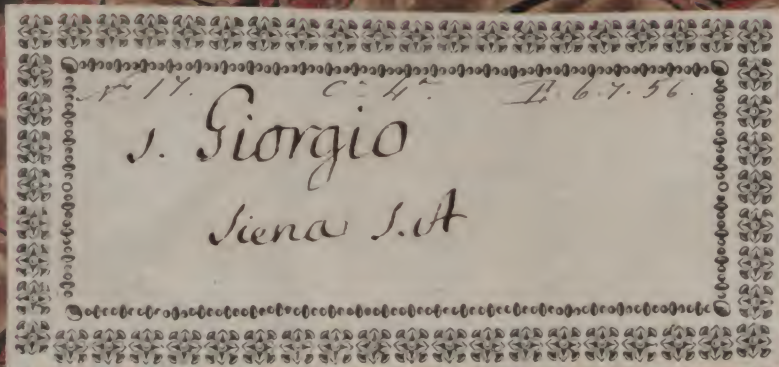 N° 17. C° 4°. E. 6.7.56.
S. Giorgio
Siena S.A